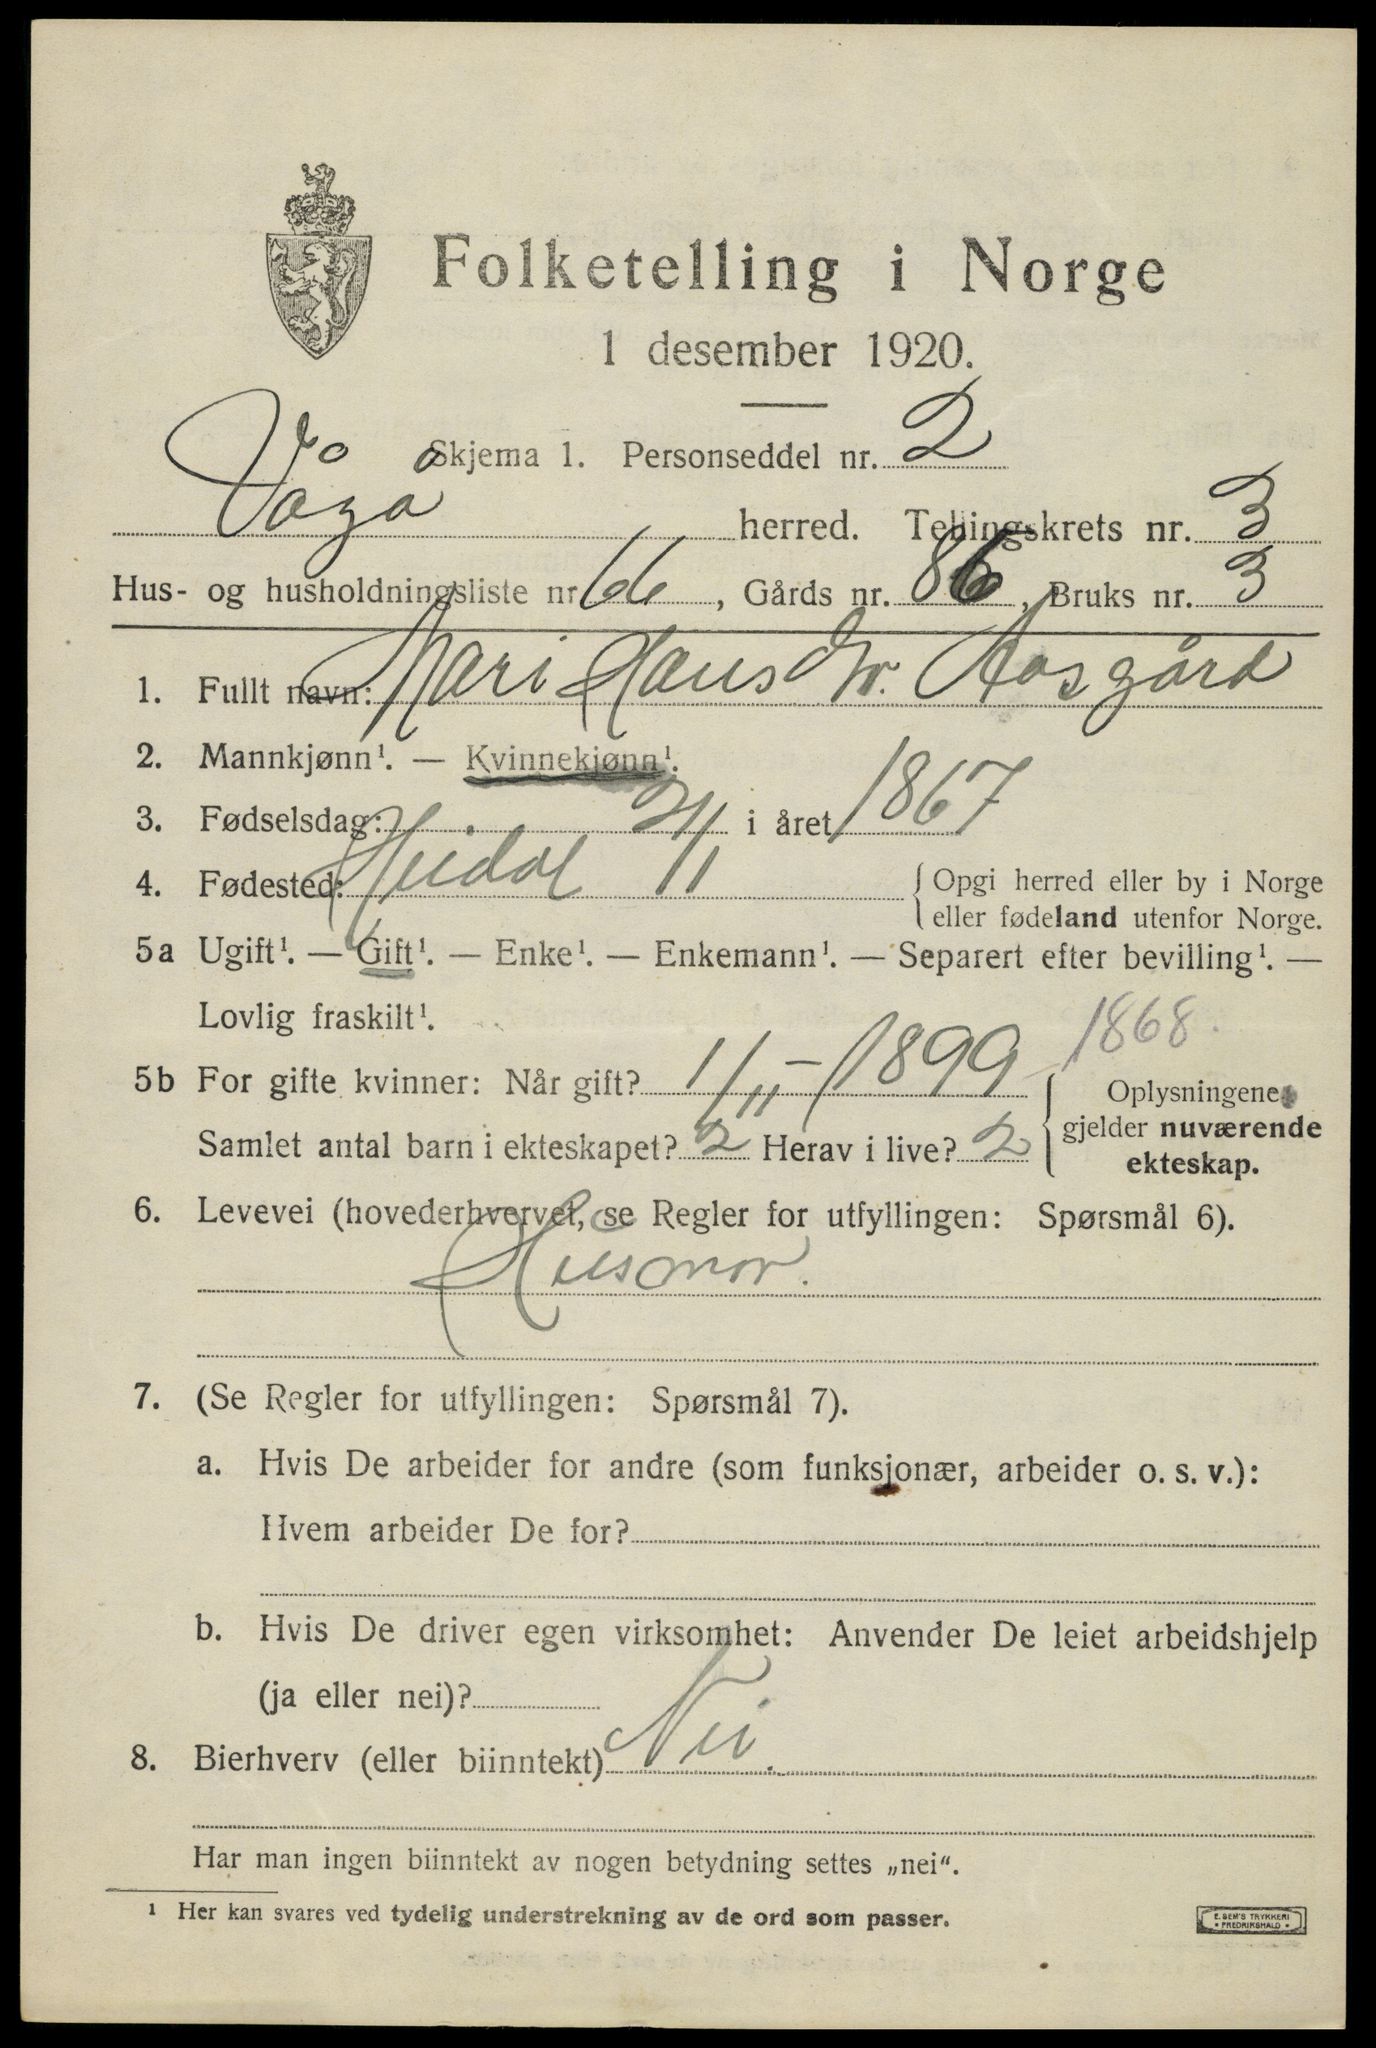 Folketelling i Norge
1 desember 1920.
Skjema 1. Personseddel nr. 2
Vågå herred. Tellingskrets nr. 3
Hus- og husholdningsliste nr. 66, Gårds nr. 86, Bruks nr. 3
1. Fullt navn: Mari Hansdtr. Aasgård
2. Mannkjønn¹. — Kvinnekjønn¹.
3. Fødselsdag: 21/11 i året 1867
4. Fødested: Heidal {Opgi herred eller by i Norge
eller fødeland utenfor Norge.
5a Ugift¹. — Gift¹. — Enke¹. — Enkemann¹. — Separert efter bevilling¹. —
Lovlig fraskilt¹.
1868.
5b For gifte kvinner: Når gift? 1/11-1899 { Oplysningene
gjelder nuværende
ekteskap.
Samlet antal barn i ekteskapet? 2 Herav i live? 2
6. Levevei (hovederhvervet, se Regler for utfyllingen: Spørsmål 6).
Husmor.
7. (Se Regler for utfyllingen: Spørsmål 7).
a. Hvis De arbeider for andre (som funksjonær, arbeider o. s. v.):
Hvem arbeider De for?
b. Hvis De driver egen virksomhet: Anvender De leiet arbeidshjelp
(ja eller nei)?
8. Bierhverv (eller biinntekt) Nei.
Har man ingen biinntekt av nogen betydning settes „nei".
¹ Her kan svares ved tydelig understrekning av de ord som passer.
E. SEM'S TRYKKERI
• FREDRIKSHALD •